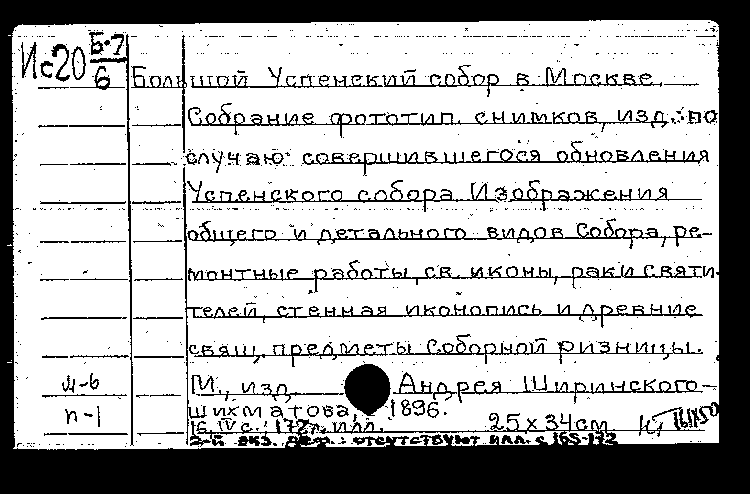 Ис20 Б-7/6
Большой Успенский собор в Москве.
Собрание фототип. снимков, изд. по
случаю совершившегося обновления
Успенского собора. Изображения
общего и детального видов Собора, ре-
монтные работы, св. иконы, раки святи-
телей, стенная иконопись и древние
свящ. предметы Соборной ризницы.
М., изд. Андрея Ширинского-
и-6
п-1
Шихматова, 1896.
16, IV с.; 172 л. илл. 25x34см.
2-й экз. деф.: отсутствуют илл. с 165-172